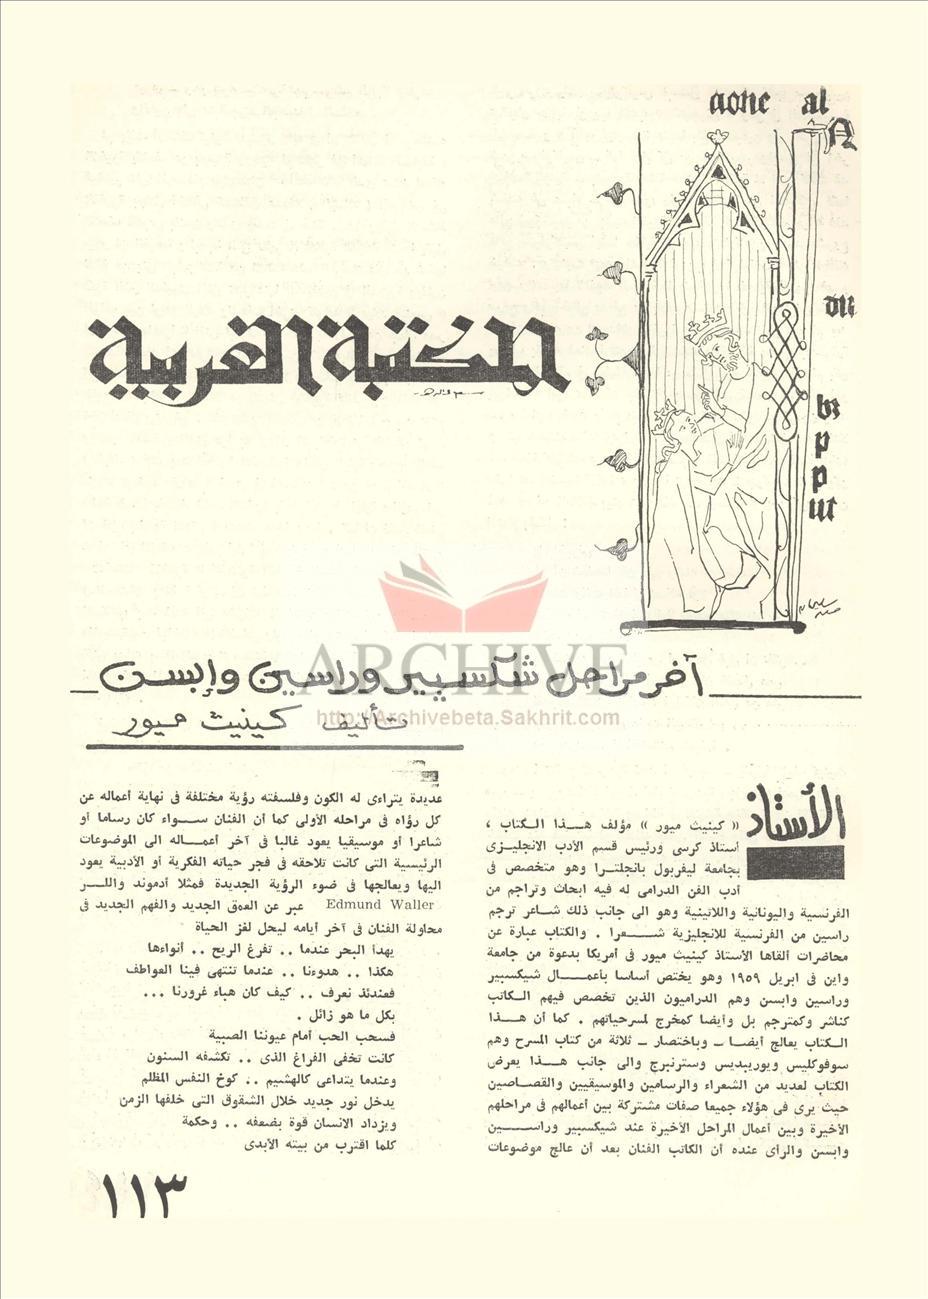 aohe al
N
du
br
p
p
ut
المكتبة الغربية
ARCHIVE
http://Archivebeta.Sakhrit.com
آخر مراحل شكسبير وراسين وإبسن
تأليف كينيث ميور
الأستاذ
« كينيث ميور » مؤلف هـــذا الــكتاب ،
أستاذ كرسى ورئيس قسم الأدب الانجليــزى
بجامعة ليفربول بانجلتــرا وهو متخصص فى
أدب الفن الدرامى له فيه ابحاث وتراجم من
الفرنسية واليونانية واللاتينية وهو الى جانب ذلك شـاعر ترجم
راسين من الفرنسية للانجليزية شــــعرا . والكتاب عبارة عن
محاضرات ألقاها الأستاذ كينيث ميور فى أمريكا بدعوة من جامعة
واين فى ابريل ١٩٥٩ وهو يختص أساسا بأعمـــال شيكسبير
وراسين وابسن وهم الدراميون الذين تخصص فيهم الـكاتب
كناشر وكمترجم بل وأيضا كمخرج لمسرحياتهم . كما أن هــذا
الــكتاب يعالج أيضــا ــ وباختصار ــ ثلاثة من كتاب المسرح وهم
سوفوكليس ويوريبديس وسترنبرج والى جانب هــذا يعرض
الكتاب لعديد من الشعراء والرسامين والموسيقيين والقصــاصين
حيث يرى فى هؤلاء جميعا صفات مشتركة بين أعمالهم فى مراحلهم
الأخيرة وبين أعمال المراحل الأخيرة عند شيكسبير وراســــين
وابسن والرأى عنده أن الكاتب الفنان بعد أن عالج موضوعات
عديدة يتراءى له الكون وفلسفته رؤية مختلفة فى نهاية أعماله عن
كل رؤاه فى مراحله الأولى كما أن الفنان ســـواء كان رساما أو
شاعرا أو موسيقيا يعود غالبا فى آخر أعمــاله الى الموضوعات
الرئيسية التى كانت تلاحقه فى فجر حياته الفكرية أو الأدبية يعود
اليها ويعالجها فى ضوء الرؤية الجديدة فمثلا أدموند واللـــر
Edmund Waller عبر عن العمق الجديد والفهم الجديد فى
محاولة الفنان فى آخر أيامه ليحل لغز الحياة
يهدأ البحر عندما .. تفرغ الريح .. أنواءها
هكذا .. هدوءنا .. عندما تنتهى فينا العواطف
فعندئذ نعرف .. كيف كان هباء غرورنا ...
بكل ما هو زائل .
فسحب الحب أمام عيوننا الصبية
كانت تخفى الفراغ الذى .. تكشفه السنون
وعندما يتداعى كالهشيم .. كوخ النفس المظلم
يدخل نور جديد خلال الشقوق التى خلفها الزمن
ويزداد الانسان قوة بضعفه .. وحكمة
كلما اقترب من بيته الأبدى
١١٣